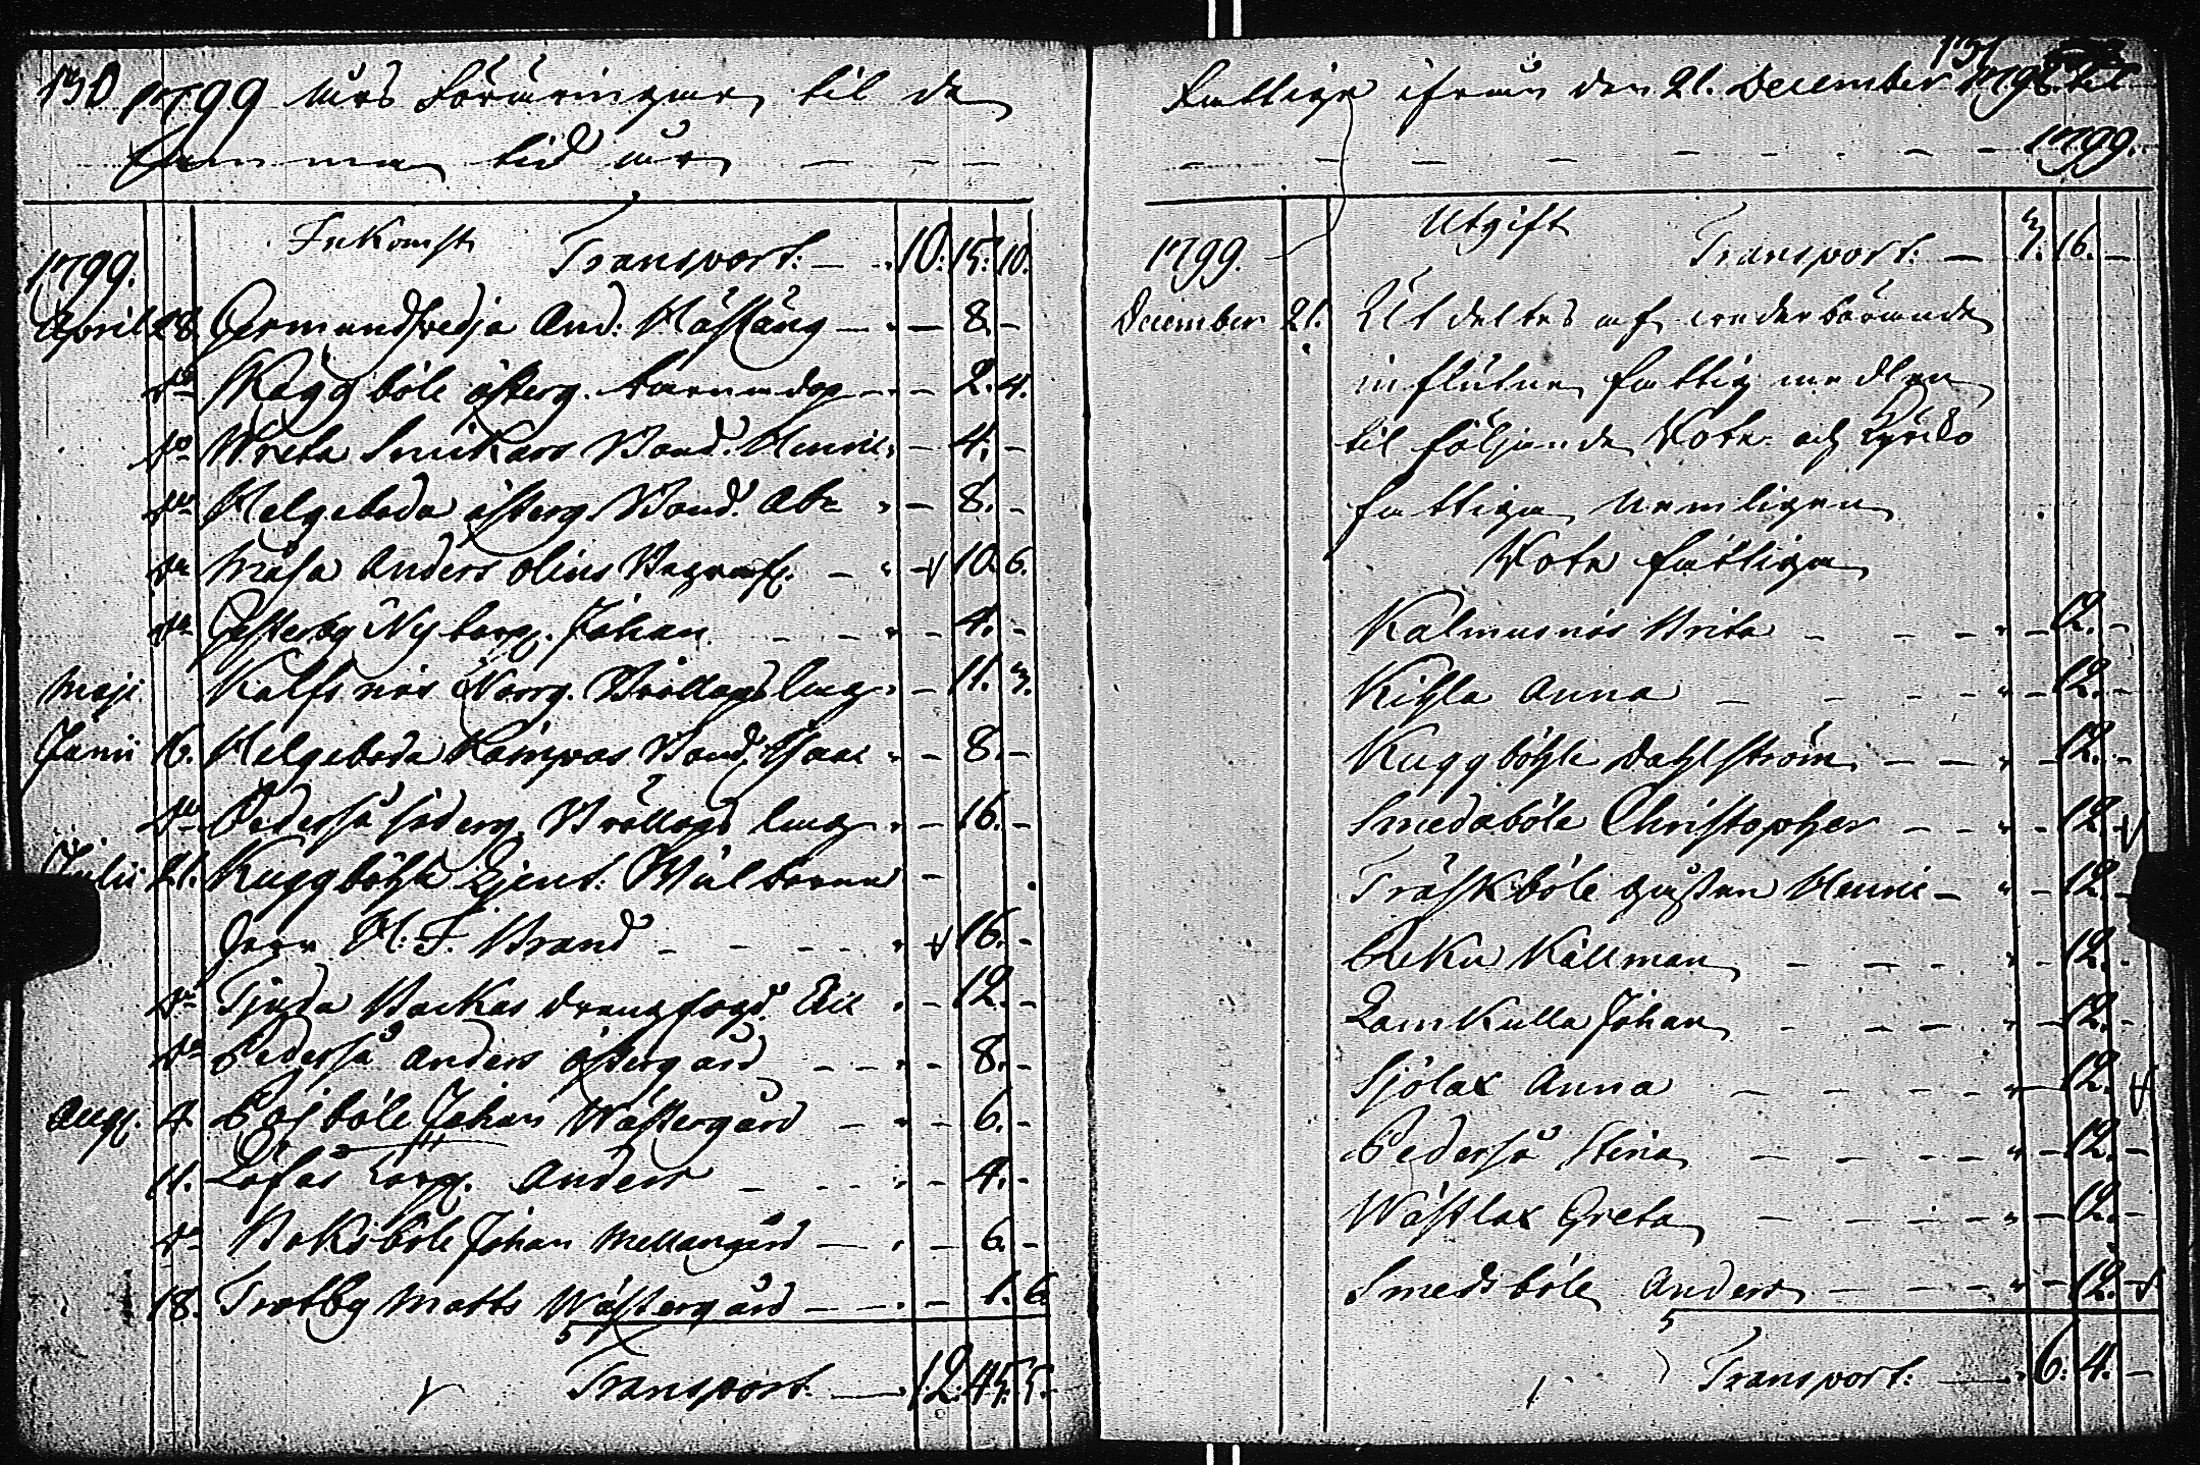 130 1799 års Föräringar til de
samma tid år — — —
Inkomst Transport: — 10: 15: 10.
1799.
April 28 Germundsvedja And: Hästäng — " — 8. —
do Skäggböle österg. barnadop — " — 2. 4.
do Wreta Smikars Bond. Henric " — 4. —
do Helgeboda österg. Bond. Ab: " — 8. —
do Måsa Anders olins — " — 10. 6.
do Gesterby Nyborg. Johan — — " — 4. —
Maji Kalfsnäs Norrg. Bröllops lag " — 11. 3.
Junii 16. Helgeboda Kampas Bond. Isaac " — 8. —
do Pederså söderg. Bröllops lag " — 16. —
Julii 21. Kuggböhle Lieut: Wälborne —
Herr H: F. Brand — — — " — 16. —
do Tjusda Backas drengfogd. Eric " — 12. —
do Pederså Anders östergård — — " — 8. —
Aug. 4. Pojböle Johan Wästergård — " — 6. —
11. Löfås torp. Anders — — — " — 4. —
do Boksböle Johan Mellangård — " — 6. —
18. Trotby Matts Wästergård — — " — 1. 6.
Transport: — 12. 45. 5.
131
Fattiga ifrån den 21. December 1798. til
— — — — — — — — 1799.
Utgift Transport: — 3. 16. —
1799.
December 21. Utdeltes af wederbörande
influtne fattig medlen
til följande Rote och Kyrko
fattiga nemligen
Rote fattiga
Kalmusnäs Brita — — — " — 12. —
Kihla Anna — — — — " — 12. —
Kuggböhle Dahlström — — " — 12. —
Smedaböle Christopher — — " — 12. —
Träskböle gustan Henric — " — 12. —
Beku Källman — — — " — 12. —
Lamkulla Johan — — — " — 12. —
Sjölax Anna — — — — " — 12. —
Pederså Stina — — — — " — 12. —
Wästlax Greta — — — — " — 12. —
Smedsböle Anders — — — " — 12. —
Transport: — " 6: 4. —